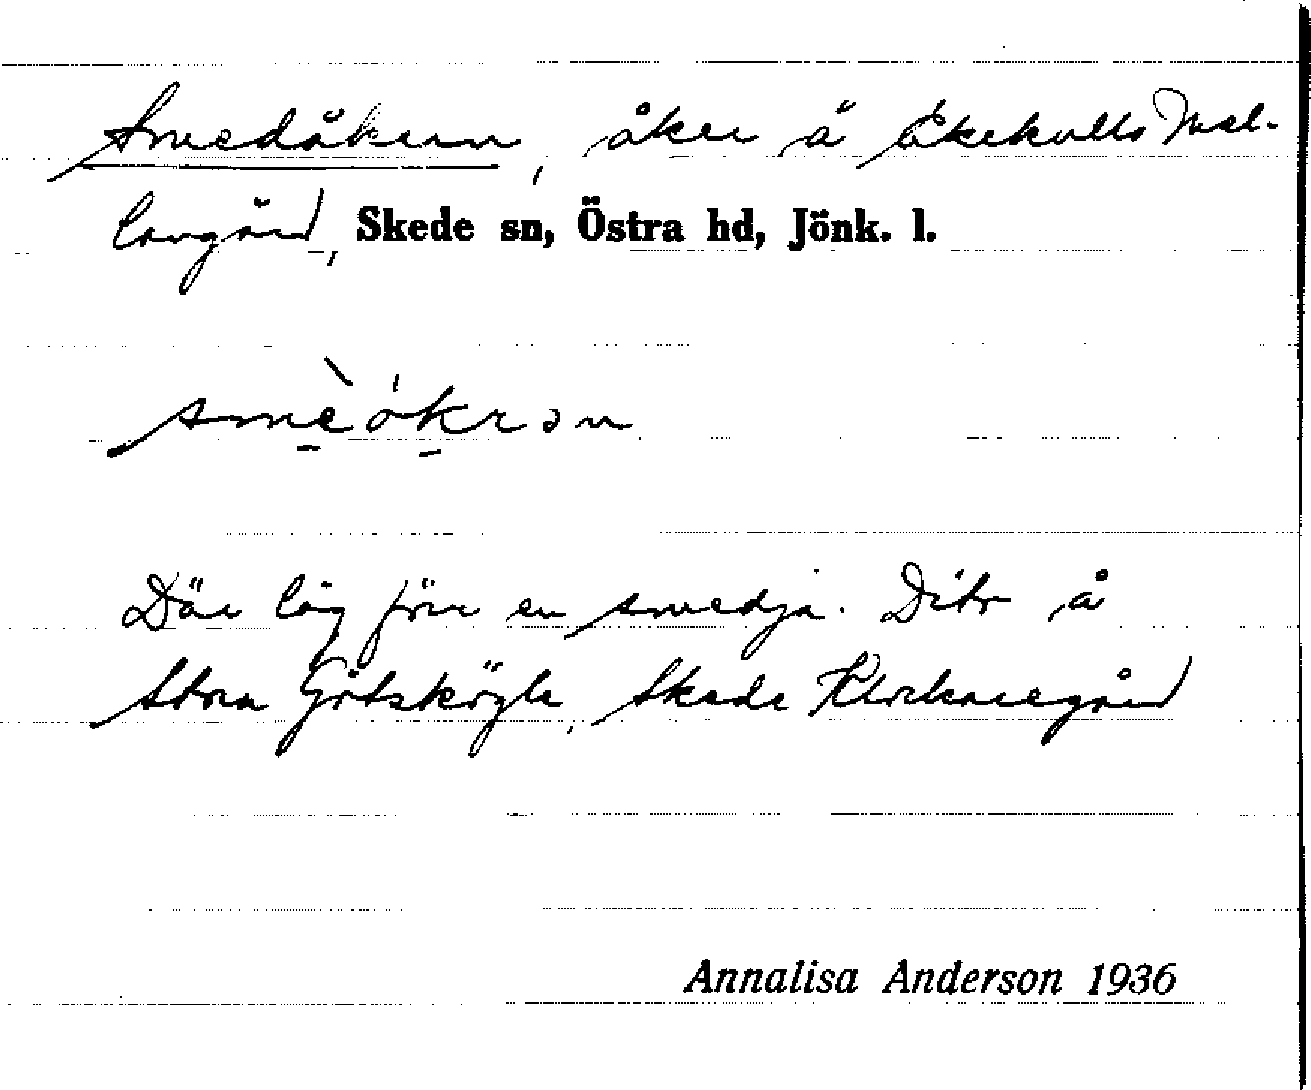 Smedåkern, åker å Ekekulls Mel-
langård, Skede sn, Östra hd, Jönk. l.
smèókrən
Där låg förr en smedja. Dito å
Stora Götsskögle, Skede Klockaregård
Annalisa Anderson 1936